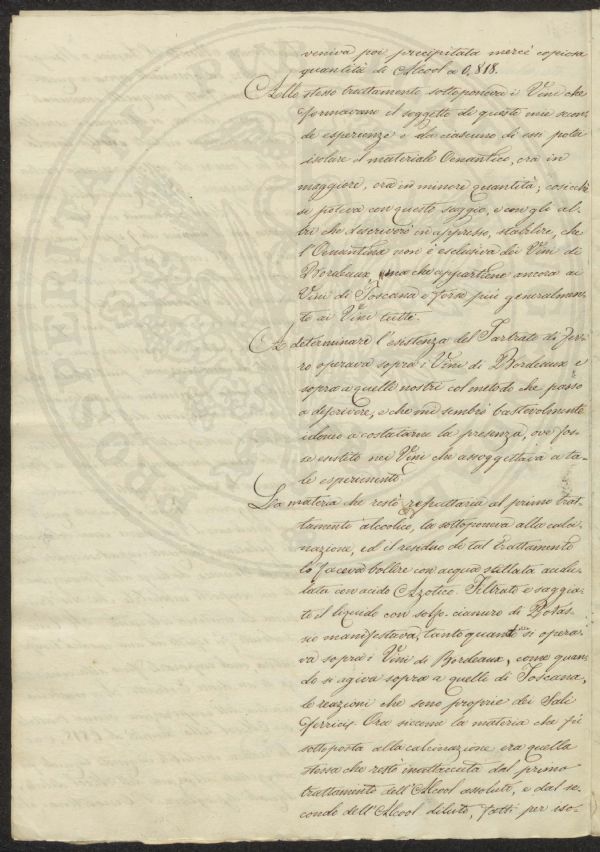 veniva poi precipitata mercè copiosa
quantità di Alcool a 0,818.
Allo stesso trattamento sottoponeva i Vini che
formavano il soggetto di queste mie secon-
de esperienze e da ciascuno di essi potei
isolare il materiale Oenantico, ora in
maggiore, ora in minore quantità; cosicchè
si poteva con questo saggio, e con gli al-
tri che descriverò in appresso, stabilire, che
l'Oenantina non è esclusiva dei Vini di
Bordeaux, ma che appartiene ancora ai
Vini di Toscana e forse più generalmen-
te ai Vini tutti.
A determinare l'esistenza del Tartrato di Fer-
ro operava sopra i Vini di Bordeaux e
sopra a quelli nostri col metodo che passo
a descrivere, e che mi sembrò bastevolmente
idoneo a costatarne la presenza, ove fos-
se esistito nei Vini che assoggettava a ta-
le esperimento.
La materia che restò reputtaria al primo trat-
tamento alcoolico, la sottoponeva alla calci-
nazione, ed il residuo di tal trattamento
lo faceva bollire con acqua stillata acidu-
lata con acido Azotico. Filtrato e saggia-
to il liquido con solfo-cianuro di Potas-
sio manifestava, tanto quanto si opera-
va sopra i Vini di Bordeaux, come quan-
do si agiva sopra a quelli di Toscana,
le reazioni che sono proprie dei Sali
ferrici. Ora siccome la materia che fù
sottoposta alla calcinazione era quella
stessa che restò inattaccata dal primo
trattamento dell'Alcool assoluto, e dal se-
condo dell'Alcool diluto, fatti per iso-